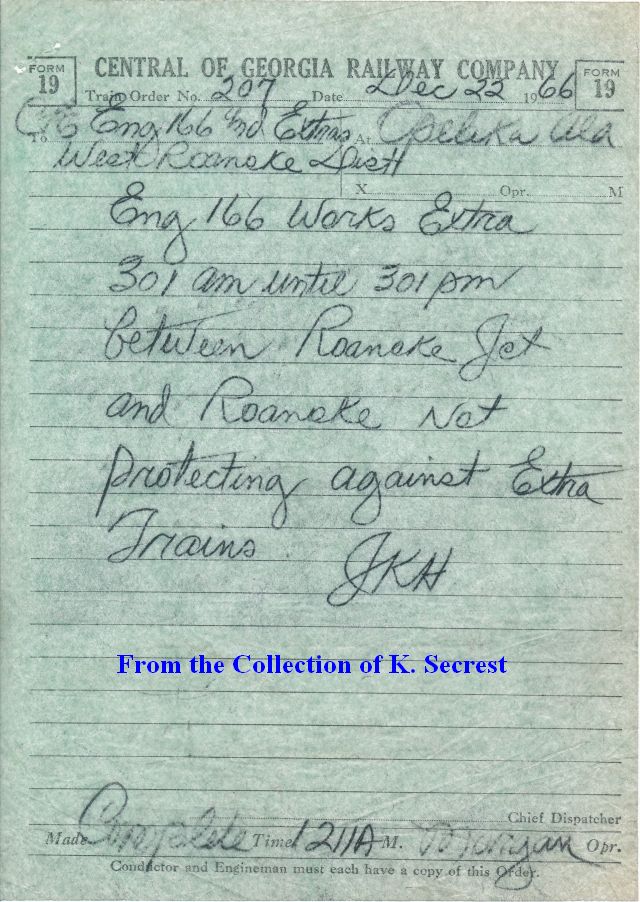 FORM 19 CENTRAL OF GEORGIA RAILWAY COMPANY FORM 19
Train Order No. 207 Date Dec 22 1966
To C&E Eng 166 and Extras At Opelika Ala
West Roanoke Dist
X Opr. M
Eng 166 Works Extra
301 am until 301 pm
between Roanoke Jct
and Roanoke Not
protecting against Extra
Trains JKH
From the Collection of K. Secrest
Chief Dispatcher
Made Complete Time 1211A M. Opr.
Conductor and Engineman must each have a copy of this Order.